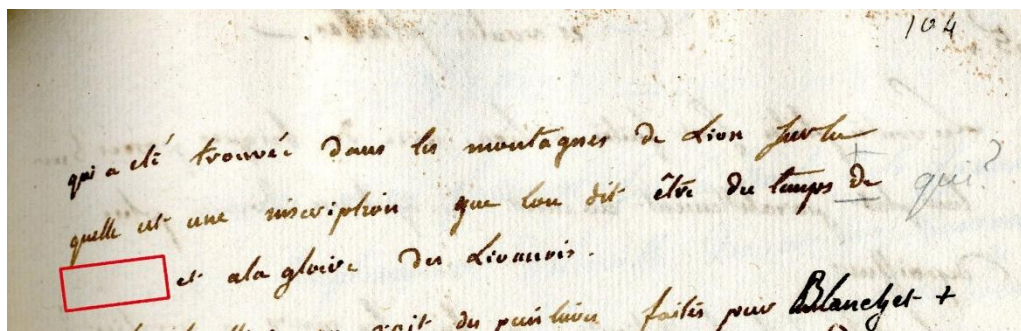 104
qui a eté trouvée dans les montagnes de Lion sur la
quelle est une inscription que lon dit être du temps de qui?
et ala gloire des Lionnois.
des peintures faites pour Blanchet +